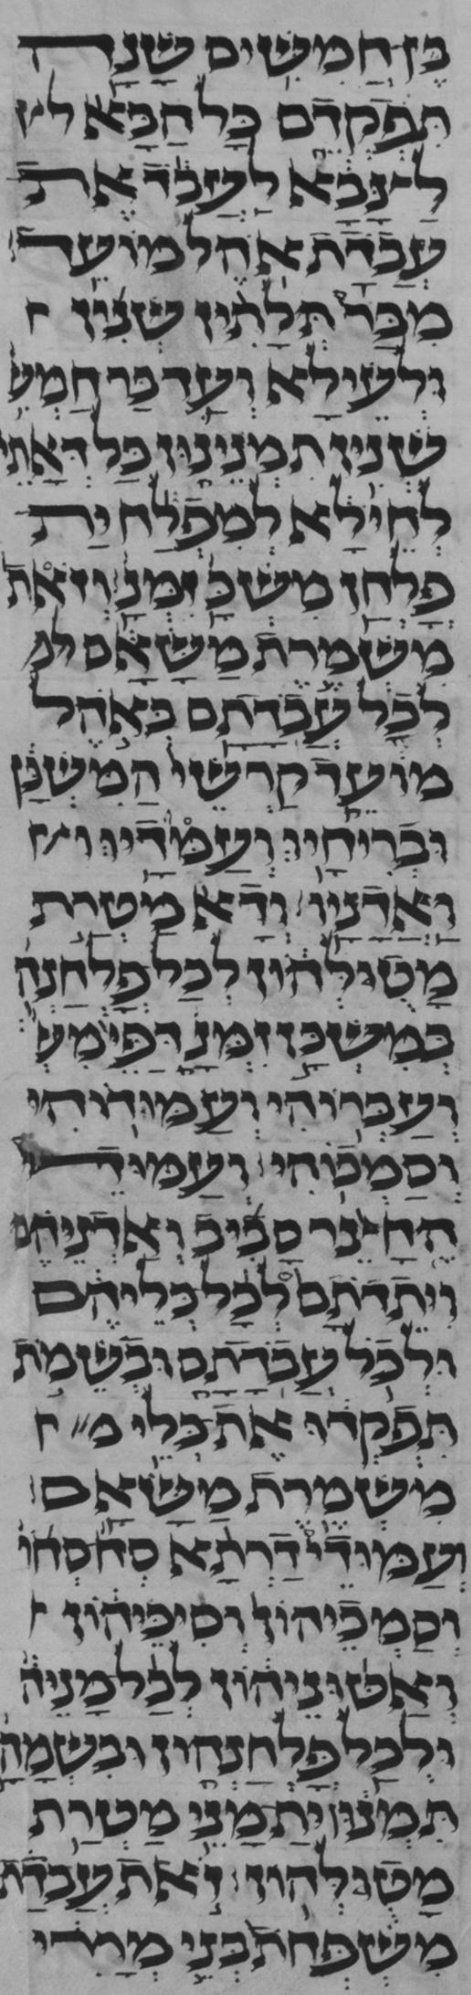 בֶּן חֲמִשִּׁים שָׁנָה
תִּפְקְדֵם כָּל הַבָּא
לִצְבֹא לַעֲבֹד אֶת
עֲבֹדַת אֹהֶל מוֹעֵד
מִבַּר תְּלָתִין שְׁנִין
וּלְעֵילָא וְעַד בַּר חַמְשִׁ
שְׁנִין תִּמְנֵינוּן כָּל דְּאָתֵי
לְחֵילָא לְמִפְלַח יָת
פֻּלְחַן מַשְׁכַּן זִמְנָ וְזֹאת
מִשְׁמֶרֶת מַשָּׂאָם
לְכָל עֲבֹדָתָם בְּאֹהֶל
מוֹעֵד קַרְשֵׁי הַמִּשְׁכָּן
וּבְרִיחָיו וְעַמּוּדָיו
וַאֲדָנָיו וְדָא מַטְּרַת
מַטּוּלְהוֹן לְכָל פֻּלְחָנְהוֹ
בְּמַשְׁכַּן זִמְנָ דַּפֵּי מַשְׁ
וְעַבְרוֹהִי וְעַמּוּדוֹהִי
וְסַמְכוֹהִי וְעַמּוּדֵי
הֶחָצֵר סָבִיב וְאַדְנֵיהֶם
וִיתֵדֹתָם לְכָל כְּלֵיהֶם
וּלְכֹל עֲבֹדָתָם וּבְשֵׁמֹת
תִּפְקְדוּ אֶת כְּלֵי
מִשְׁמֶרֶת מַשָּׂאָם
וְעַמּוּדֵי דָרְתָא סְחֹר סְחֹו
וְסַמְכֵיהוֹן וְסִיכֵּיהוֹן
וְאַטּוּנֵיהוֹן לְכָל מָנֵיהוֹ
וּלְכָל פֻּלְחָנְהוֹן וּבִשְׁמָהָ
תִּמְנוּן יָת מָנֵי מַטְּרַת
מַטּוּלְהוֹן זֹאת עֲבֹדַת
מִשְׁפְּחֹת בְּנֵי מְרָרִי